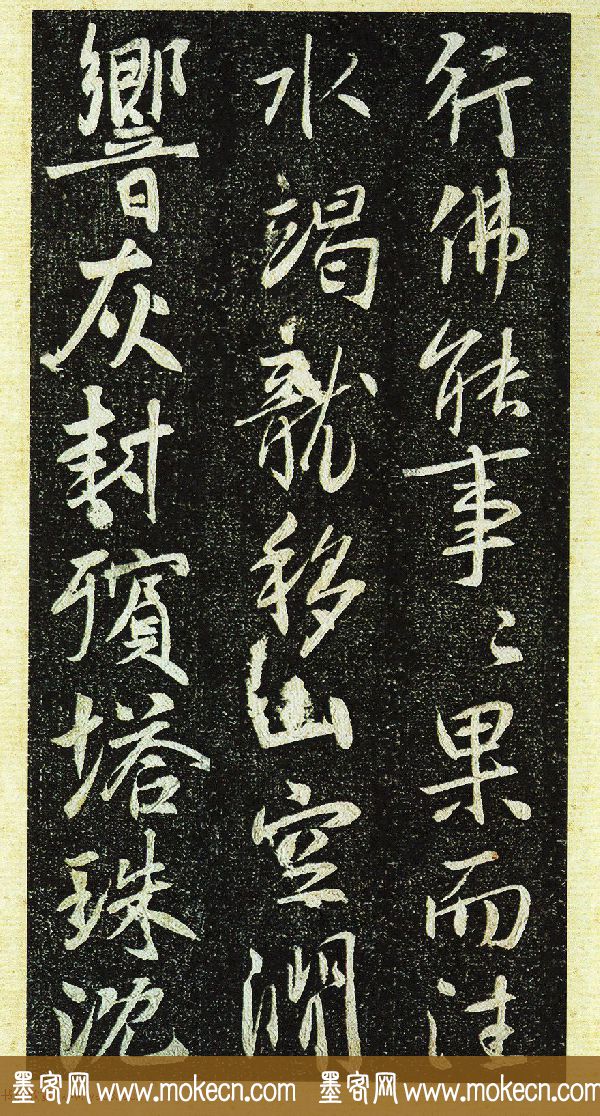 行佛能事〻果而往
水竭龍移山空澗
響灰封殯塔珠沈
墨客网 www.mokecn.com 墨客网 www.mokecn.com